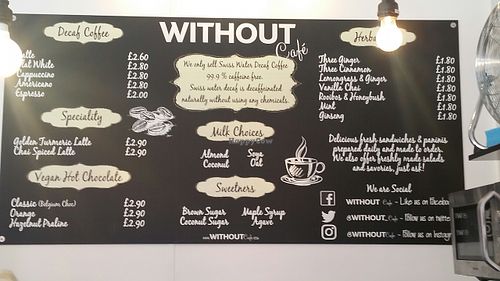 Decaf Coffee
Latte £2.60
Flat White £2.80
Cappuccino £2.80
Americano £2.80
Espresso £2.00
Speciality
Golden Turmeric Latte £2.90
Chai Spiced Latte £2.90
Vegan Hot Chocolate
Classic (Belgium Choc) £2.90
Orange £2.90
Hazelnut Praline £2.90
WITHOUT
Café
We only sell Swiss Water Decaf Coffee
99.9 % caffeine free.
Swiss water decaf is decaffeinated
naturally without using any chemicals.
Milk Choices
Almond Soya
Coconut Oat
Sweetners
Brown Sugar Maple Syrup
Coconut Sugar Agave
www.WITHOUTCafe
Herba
Three Ginger £1.80
Three Cinnamon £1.80
Lemongrass & Ginger £1.80
Vanilla Chai £1.80
Rooibos & Honeybush £1.80
Mint £1.80
Ginseng £1.80
Delicious fresh sandwiches & paninis
prepared daily and made to order.
We also offer freshly made salads
and savories, just ask!
We are Social
WITHOUT Cafe - Like us on Facebook
@WITHOUT_Cafe - Follow us on twitte
@WITHOUTCafe - Follow us on Instagr